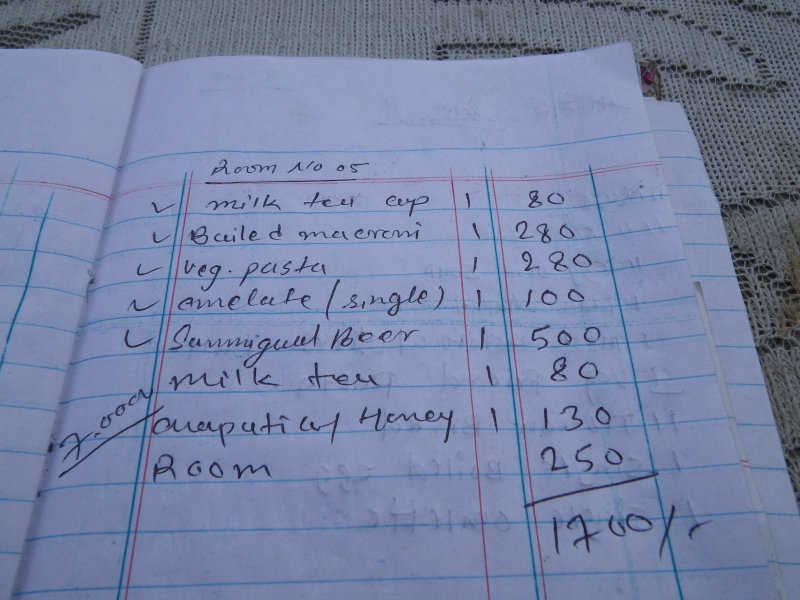 Room No 05
milk tea cup 1 80
Bailed macroni 1 280
veg. pasta 1 280
omelate (single) 1 100
Sanmigual Beer 1 500
milk tea 1 80
Chapati w/ Honey 1 130
Room 250
1700/-